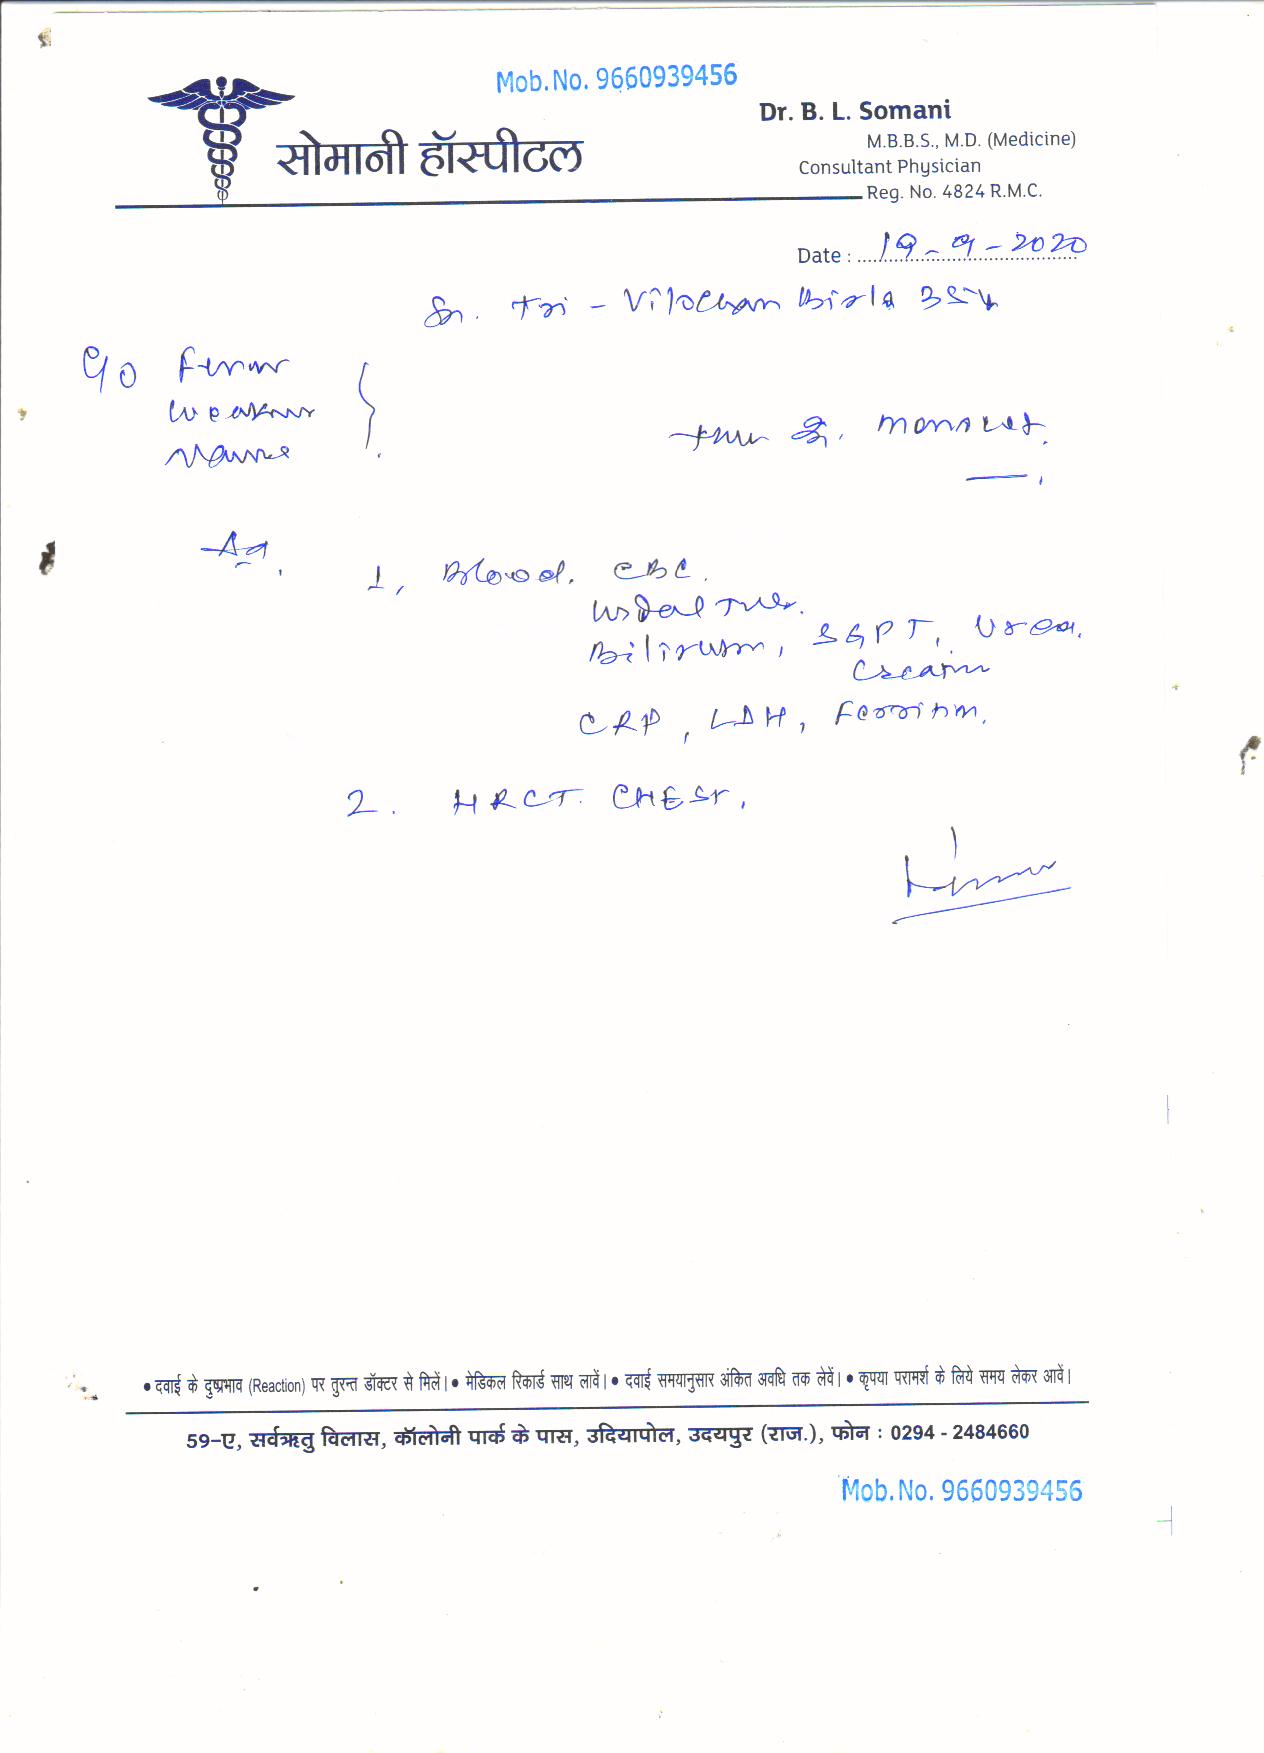 Mob.No. 9660939456
सोमानी हॉस्पीटल
Dr. B. L. Somani
M.B.B.S., M.D. (Medicine)
Consultant Physician
Reg. No. 4824 R.M.C.
Date : 19-9-2020
Tri - Vilochan Birla 35y
C/O Fever
Weakness
Nausea
Ad.
1, Blood. CBC.
Widal Test.
Bilirubin, SGPT, Urea.
Creatin
CRP, LDH, Ferritin.
2. HRCT. CHEST.
• दवाई के दुष्प्रभाव (Reaction) पर तुरन्त डॉक्टर से मिलें। • मेडिकल रिकार्ड साथ लावें। • दवाई समयानुसार अंकित अवधि तक लेवें। • कृपया परामर्श के लिये समय लेकर आवें।
59-ए, सर्वऋतु विलास, कॉलोनी पार्क के पास, उदियापोल, उदयपुर (राज.), फोन : 0294 - 2484660
Mob.No. 9660939456